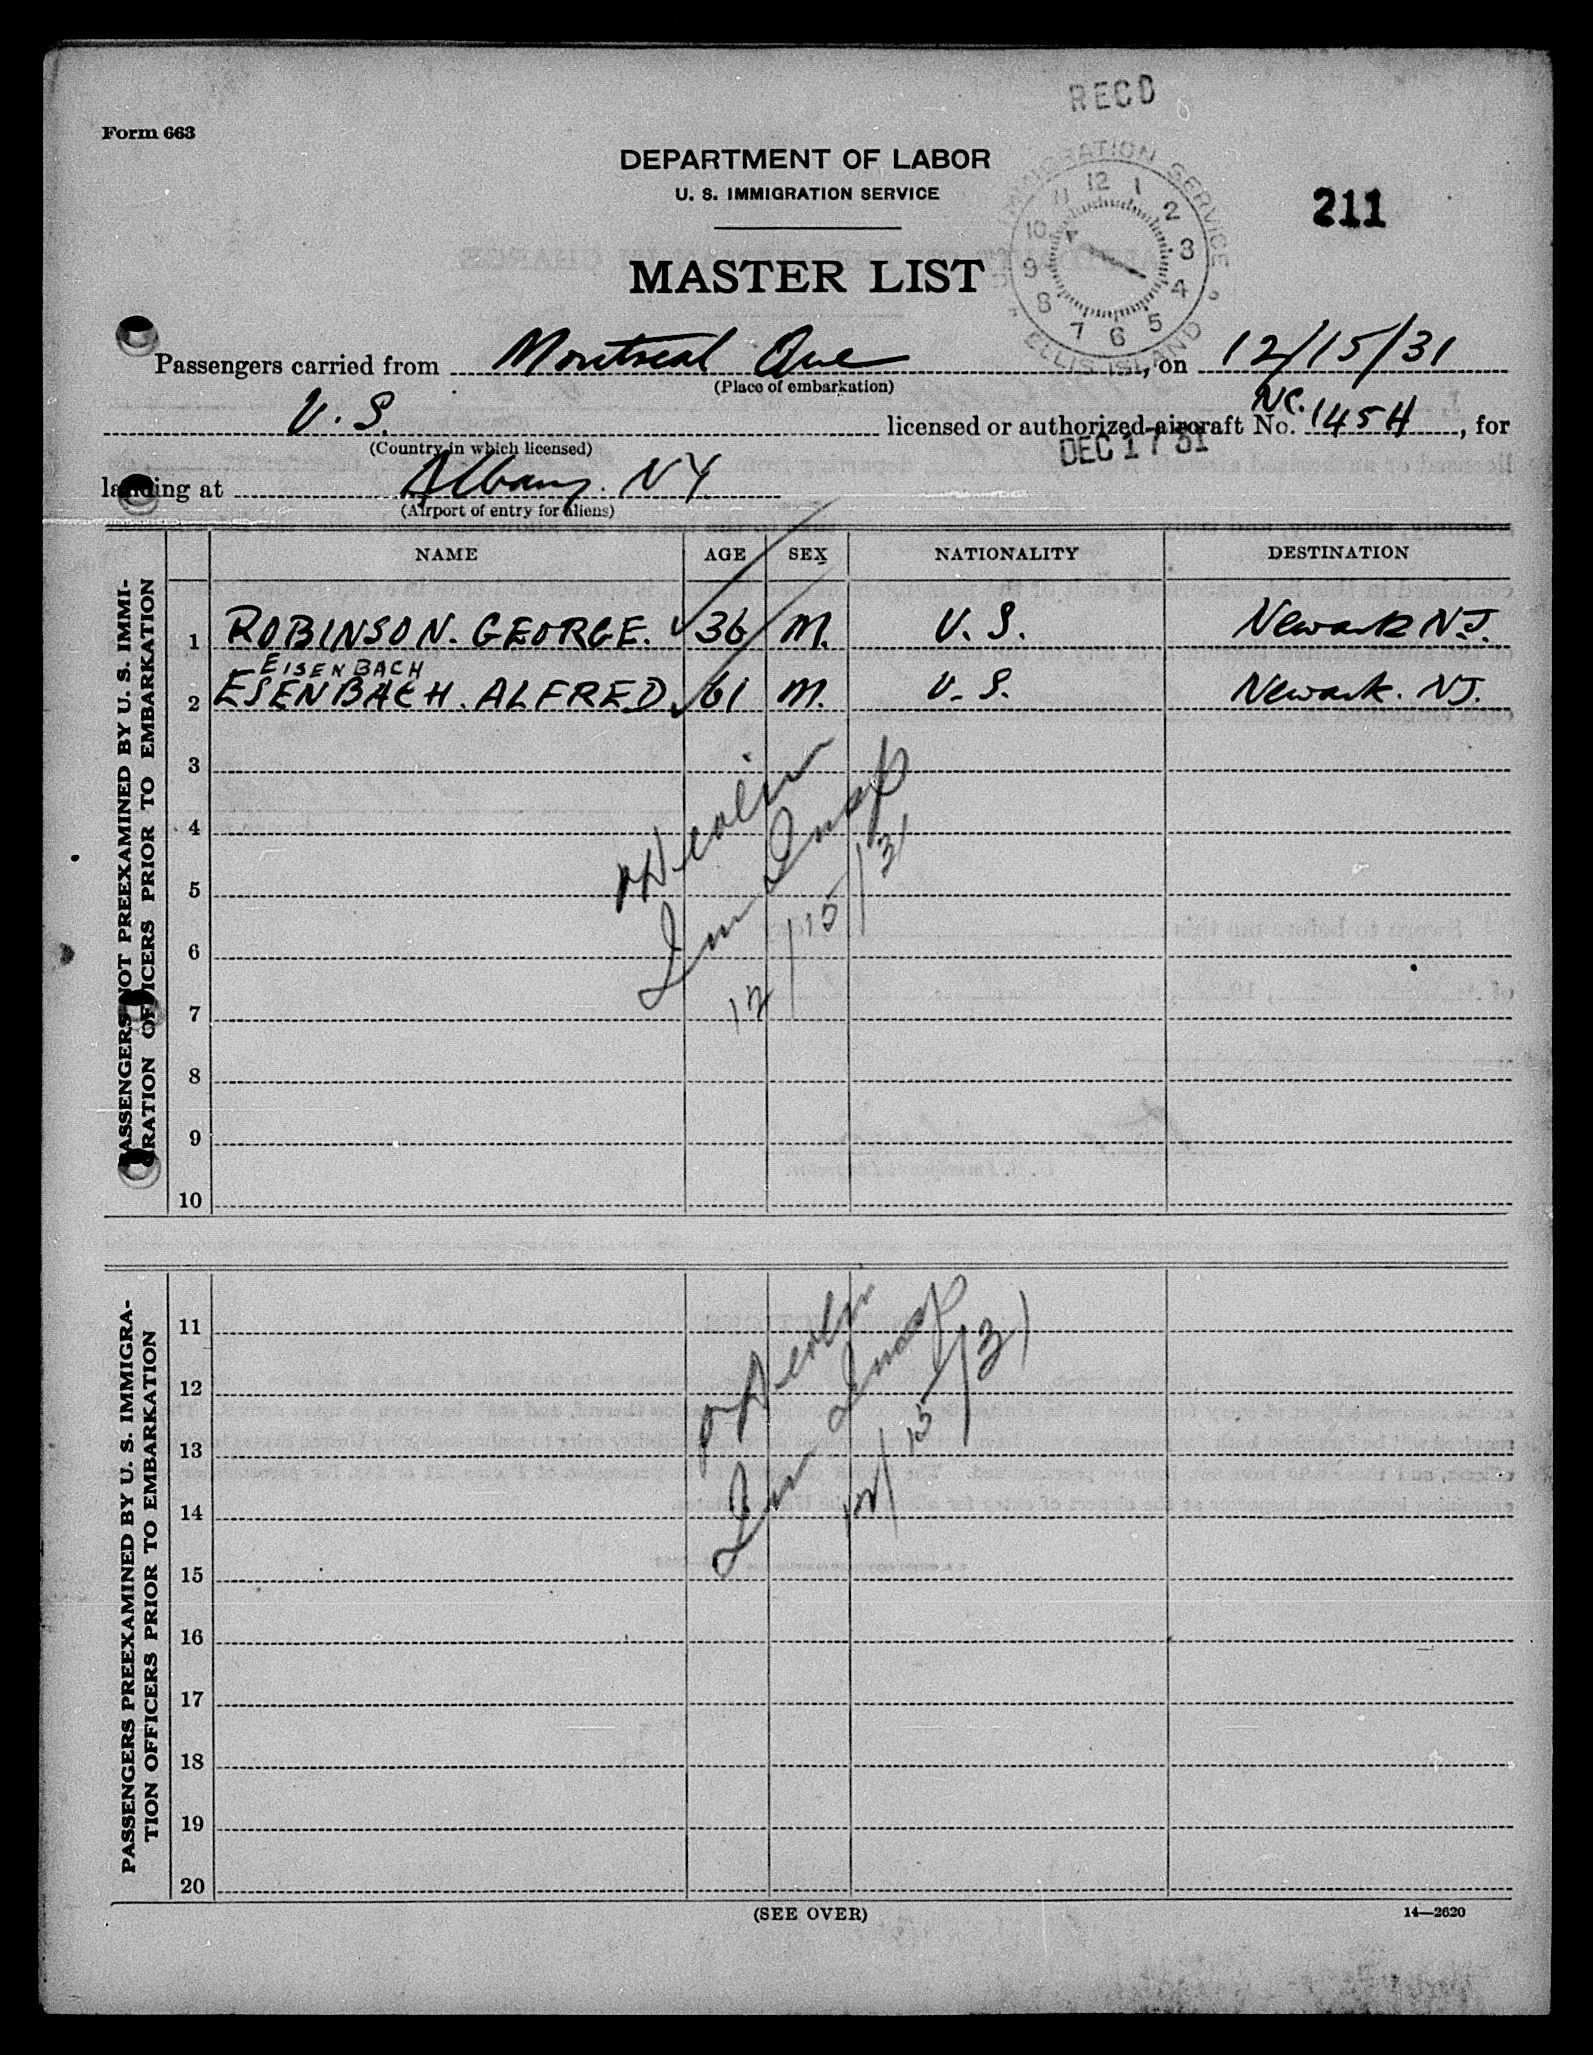 RECD
Form 663
DEPARTMENT OF LABOR
U. S. IMMIGRATION SERVICE
IMMIGRATION SERVICE
12 1 2 3 4 5 6 7 8 9 10 11
ELLIS ISLAND
211
MASTER LIST
Passengers carried from Montreal Que, on 12/15/31
(Place of embarkation)
U. S. licensed or authorized aircraft No. NC. 145H, for
(Country in which licensed)
DEC 17 31
landing at Albany. N.Y.
(Airport of entry for aliens)
NAME AGE SEX NATIONALITY DESTINATION
PASSENGERS NOT PREEXAMINED BY U. S. IMMI-
GRATION OFFICERS PRIOR TO EMBARKATION
1 ROBINSON. GEORGE. 36 M. U. S. Newark N.J.
EISENBACH
2 ESENBACH. ALFRED 61 M. U. S. Newark. NJ.
3
4
5
6
7
8
9
10
Devlin
Im Insp
12/15/31
PASSENGERS PREEXAMINED BY U. S. IMMIGRA-
TION OFFICERS PRIOR TO EMBARKATION
11
12
13
14
15
16
17
18
19
20
Devlin
Im Insp
12/15/31
(SEE OVER)
14—2620